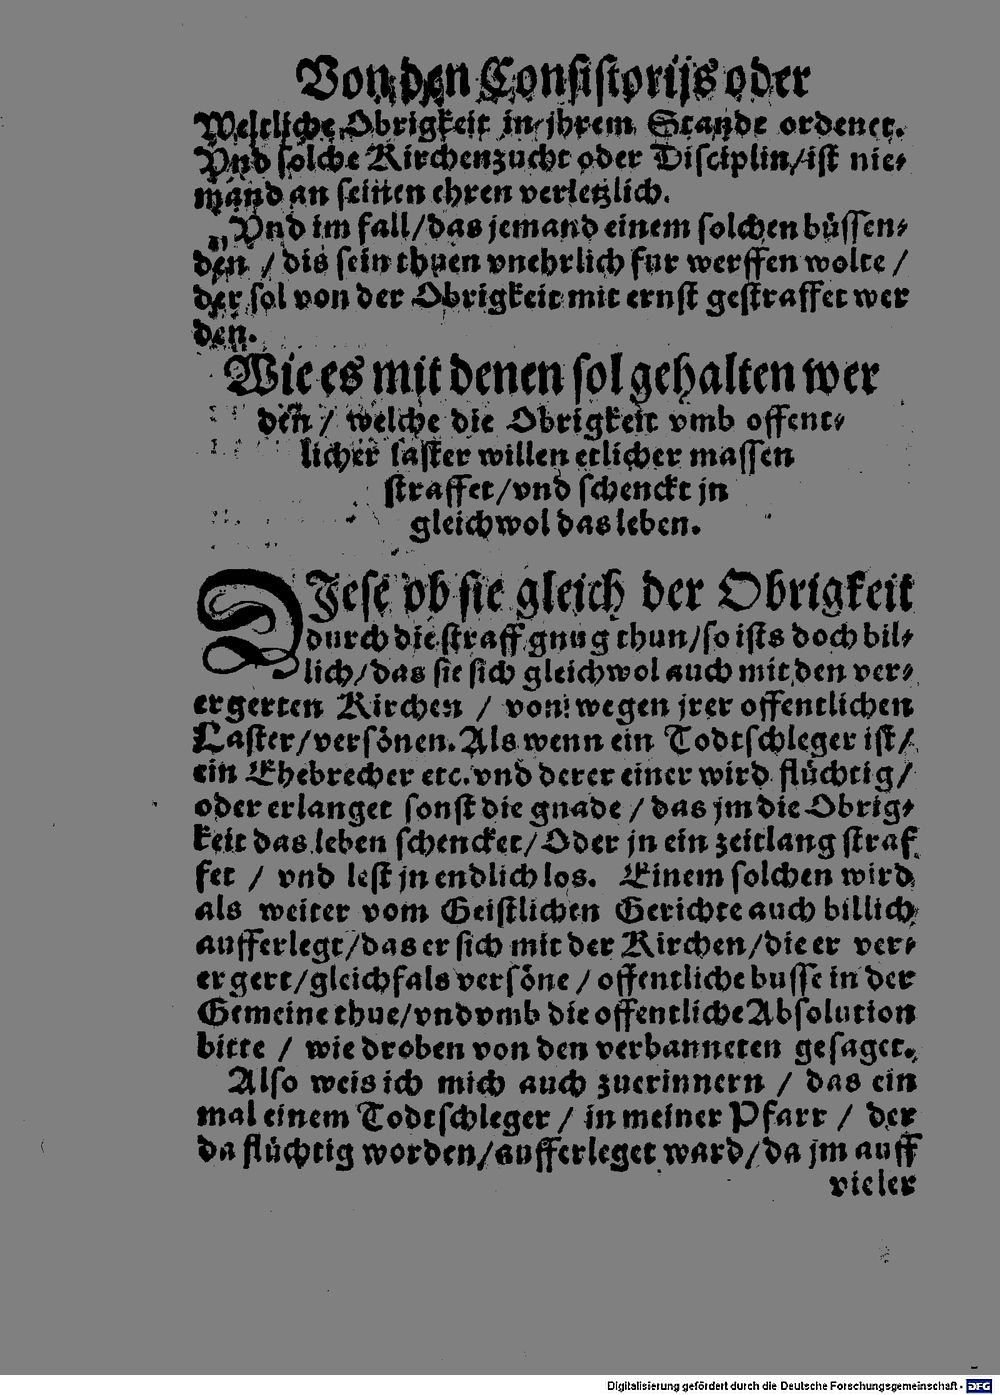 Von den Consistorijs oder
Weltliche Obrigkeit in jhrem Stande ordenet.
Vnd solche Kirchenzucht oder Disciplin/ist nie-
mand an seinen ehren verletzlich.
Vnd im fall/das jemand einem solchen büssen-
den / dis sein thuen vnehrlich fur werffen wolte /
der sol von der Obrigkeit mit ernst gestraffet wer
den.
Wie es mit denen sol gehalten wer
den / welche die Obrigkeit vmb offent-
licher laster willen etlicher massen
straffet/vnd schenckt jn
gleichwol das leben.
DJese ob sie gleich der Obrigkeit
durch die straff gnug thun/so ists doch bil-
lich/das sie sich gleichwol auch mit den ver-
ergerten Kirchen / von wegen jrer offentlichen
Laster/versönen. Als wenn ein Todtschleger ist/
ein Ehebrecher etc. vnd derer einer wird flüchtig/
oder erlanget sonst die gnade / das jm die Obrig-
keit das leben schencket/Oder jn ein zeitlang straf
fet / vnd lest jn endlich los. Einem solchen wird
als weiter vom Geistlichen Gerichte auch billich
aufferlegt/das er sich mit der Kirchen/die er ver-
ergert/gleichfals versöne / offentliche busse in der
Gemeine thue/vnd vmb die offentliche Absolution
bitte / wie droben von den verbanneten gesaget.
Also weis ich mich auch zuerinnern / das ein
mal einem Todtschleger / in meiner Pfarr / der
da flüchtig worden/aufferleget ward/da jm auff
vieler
Digitalisierung gefördert durch die Deutsche Forschungsgemeinschaft - DFG